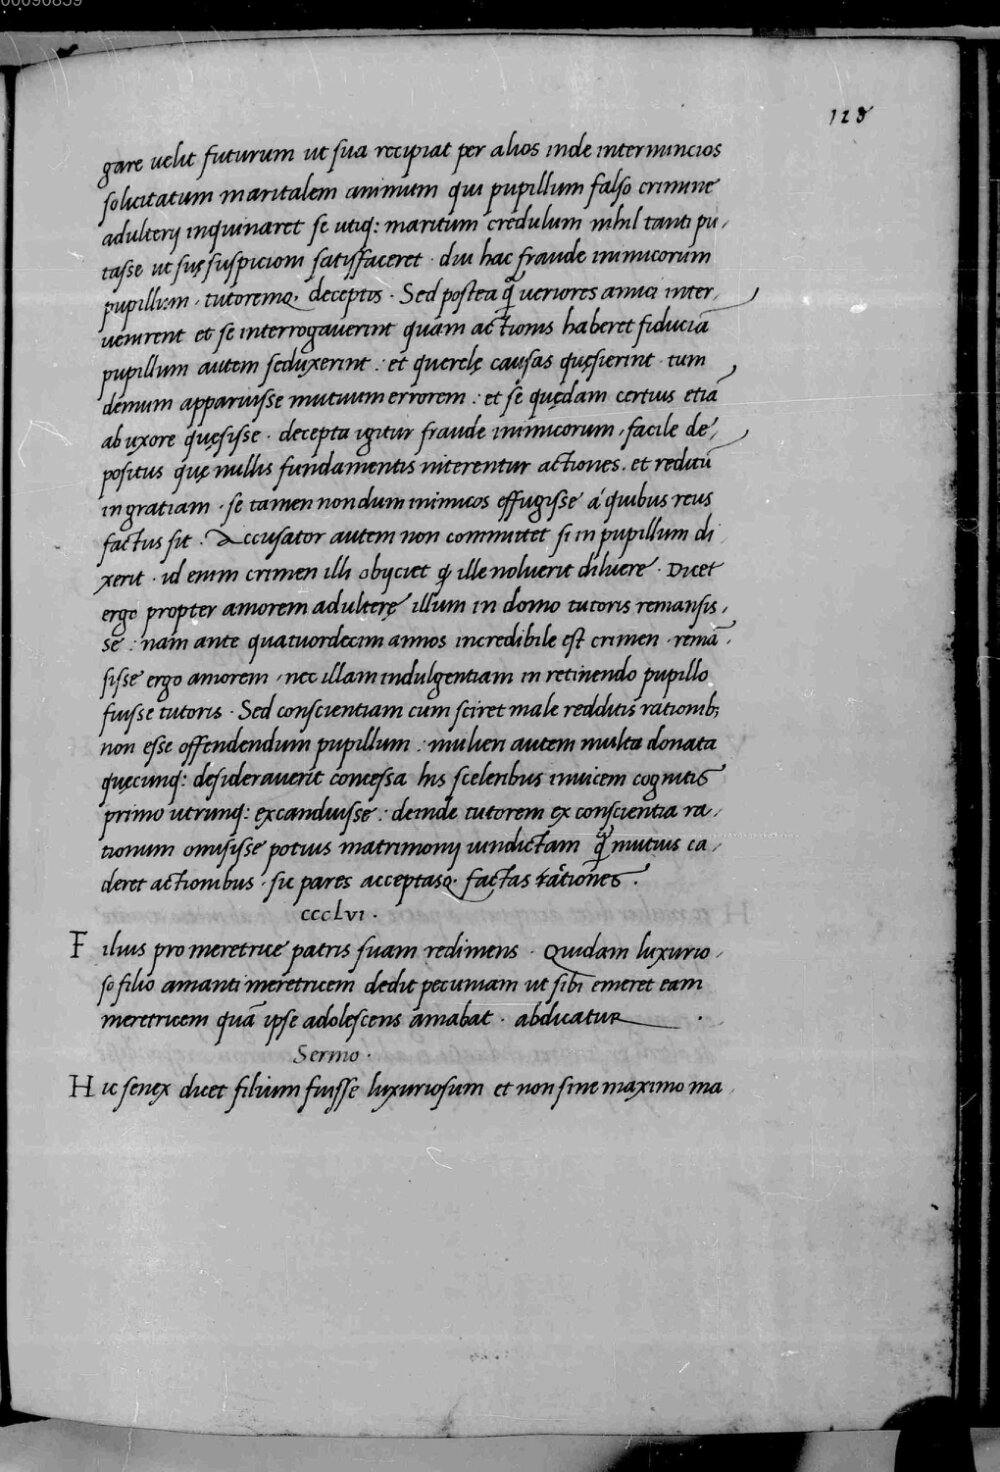 00090859
128
gare uelit futurum ut sua recipiat per alios inde internuncios
solicitatum maritalem animum qui pupillum falso crimine
adulterij inquinaret se utiq: maritum credulum nihil tanti pu,
tasse ut suę suspicioni satisfaceret · diu hac fraude inimicorum
pupillum · tutoremq, deceptos · Sed postea q̃ ueriores amici inter,
uenirent et se interrogauerint quam actionis haberet fiduciã
pupillum autem seduxerint : et querelę causas quęsierint · tum
demum apparuisse mutuum errorem : et se quędam certius etiã
ab uxore quęsisse · decepta igitur fraude inimicorum, facile de,
positus quę nullis fundamentis niterentur actiones. et reditũ
in gratiam · se tamen nondum inimicos effugisse á quibus reus
factus sit · Accusator autem non committet si in pupillum di
xerit · id enim crimen illi obijciet q̃ ille noluerit diluere · Dicet
ergo propter amorem adulterę illum in domo tutoris remansis,
se : nam ante quatuordecim annos incredibile est crimen · remã,
sisse ergo amorem, nec illam indulgentiam in retinendo pupillo
fuisse tutoris · Sed conscientiam cum sciret male redditis rationib;
non esse offendendum pupillum : mulieri autem multa donata
quęcunq: desiderauerit concessa his sceleribus inuicem cognitis
primo utrunq: excanduisse : deinde tutorem ex conscientia ra,
tionum omisisse potius matrimonij uindictam q̃ mutuis ca,
deret actionibus · sic pares acceptasq· factas rationes ·
cccLvi ·
Filius pro meretrice patris suam redimens · Quidam luxurio,
so filio amanti meretricem dedit pecuniam ut sibi emeret eam
meretricem quã ipse adolescens amabat · abdicatur ·
Sermo ·
Hic senex dicet filium fuisse luxuriosum et non sine maximo ma,